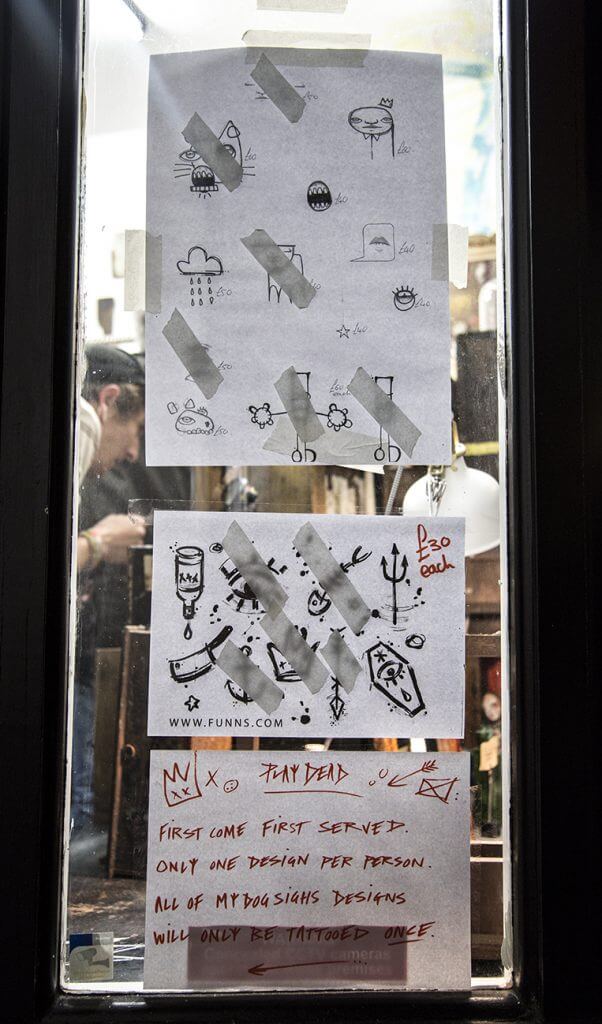 £60
£60
£40
£40
£50
£40
£40
£50
£60
each
£50
£30
each
WWW.FUNNS.COM
X PLAY DEAD
FIRST COME FIRST SERVED.
ONLY ONE DESIGN PER PERSON.
ALL OF MYDOGSIGHS DESIGNS
WILL ONLY BE TATTOOED ONCE.
CCTV cameras
premises